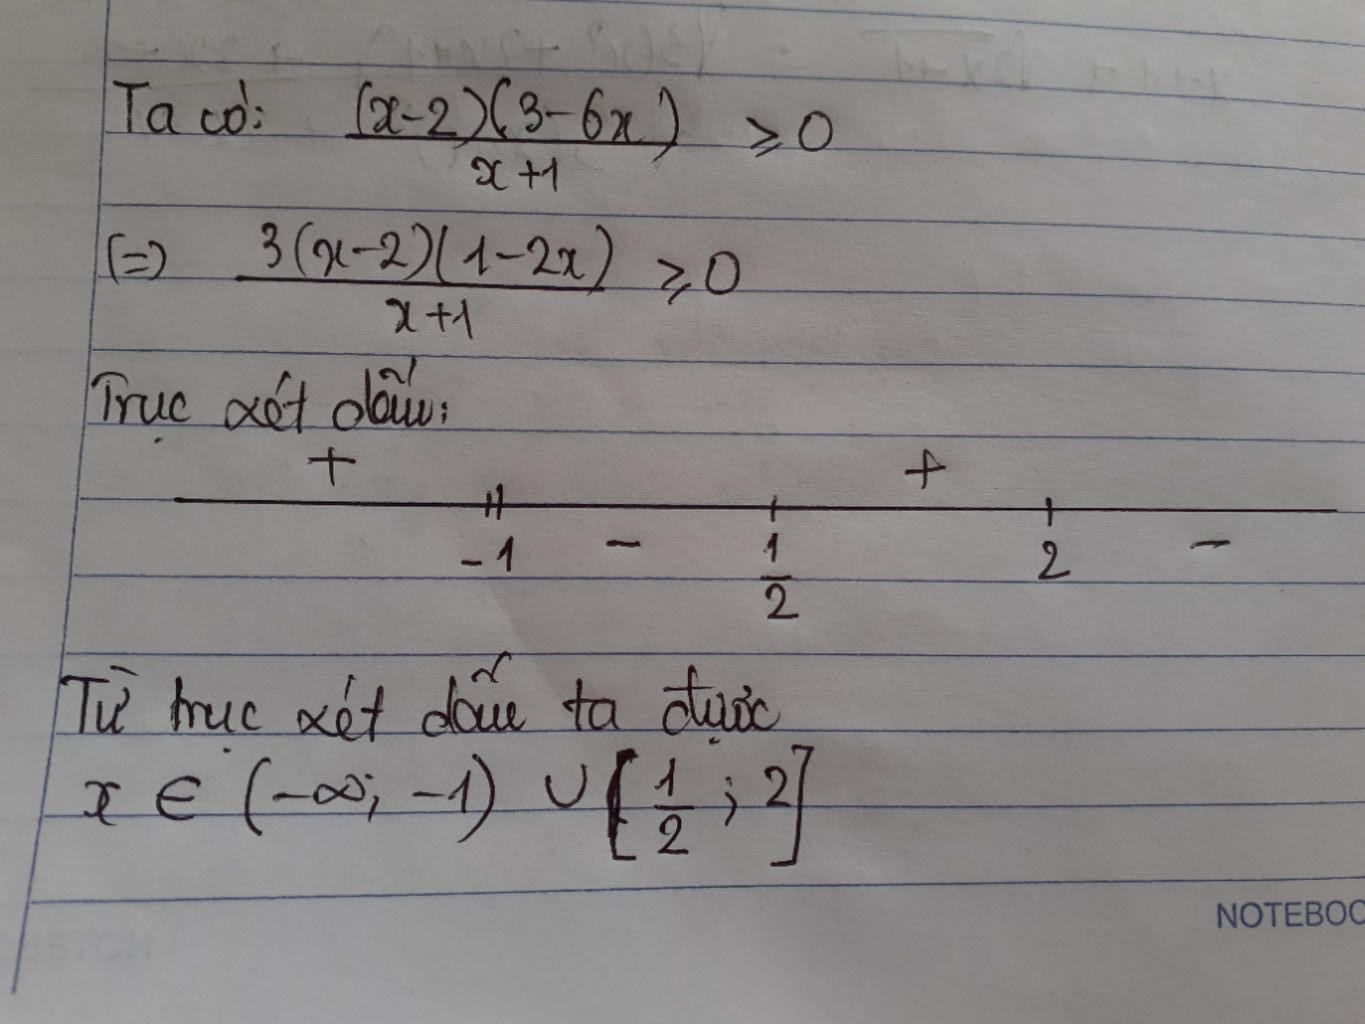 Ta có: (x-2)(3-6x) / x+1 ⩾ 0
(=) 3(x-2)(1-2x) / x+1 ⩾ 0
Trục xét dấu:
+ +
-1 - 1/2 2 -
Từ trục xét dấu ta được
x ∈ (-∞; -1) ∪ [1/2 ; 2]
NOTEBOO